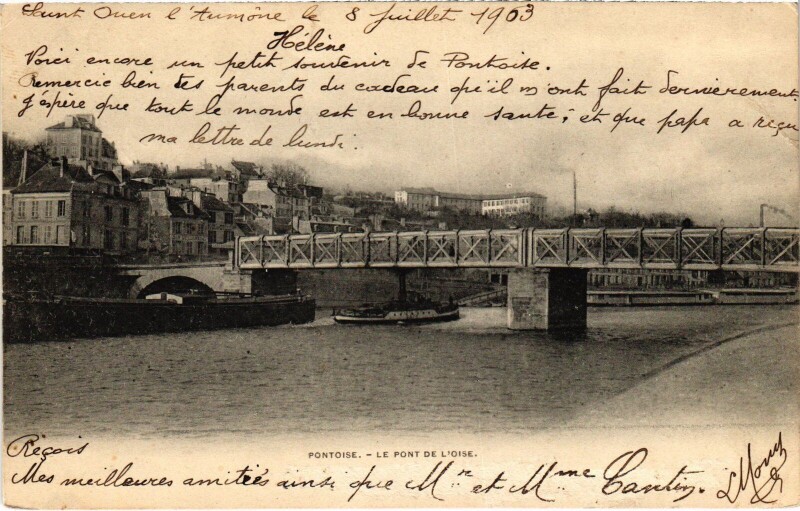 Saint Ouen l'Aumône le 8 Juillet 1903
Hélène
Voici encore un petit souvenir de Pontoise.
Remercie bien tes parents du cadeau qu'il m'ont fait dernièrement.
J'éspère que tout le monde est en bonne santé; et que papa a reçu
ma lettre de lundi.
PONTOISE. - LE PONT DE L'OISE.
Reçois
Mes meilleures amitiés ainsi que Mr et Mme Cantin.